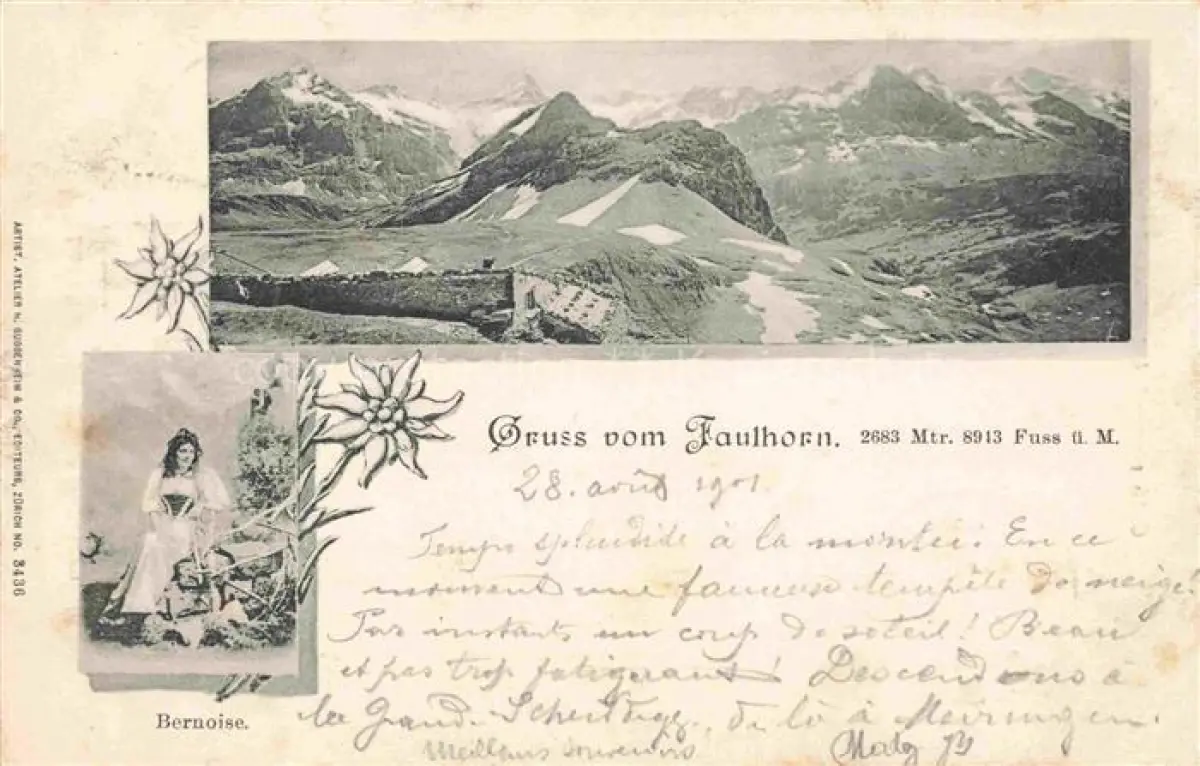 ARTIST. ATELIER H. GUGGENHEIM & CO., EDITEURS, ZÜRICH NO. 3436
Gruss vom Faulhorn. 2683 Mtr. 8913 Fuss ü. M.
28. août 1901.
Temps splendide à la montée! En ce
moment une fameuse tempête de neige!
Par instants un coup de soleil! Beau
et pas trop fatigeant! Descendons à
la Grande Scheidegg, de là à Meiringen.
Meilleurs souvenirs
Bernoise.